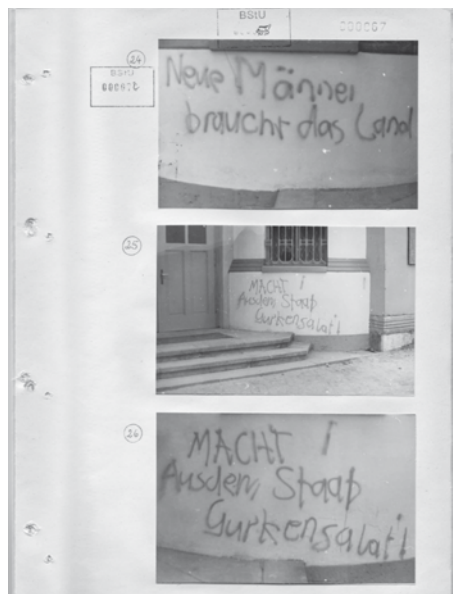 BStU
000067
24
BStU
Neue Männer
braucht das Land
25
MACHT !
Ausdem Staat
Gurkensalat!
26
MACHT !
Ausdem Staat
Gurkensalat!